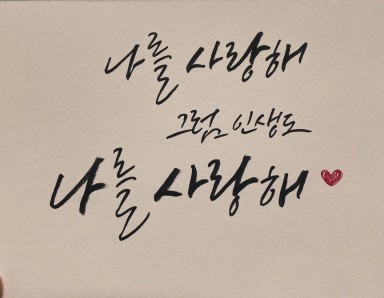 나를 사랑해
그럼 인생도
나를 사랑해